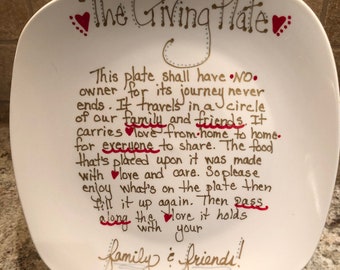 The Giving Plate
This plate shall have •NO•
owner for its journey never
ends. It travels in a circle
of our family and friends. It
carries love from home to home
for everyone to share. The food
that's placed upon it was made
with love and care. So please
enjoy what's on the plate then
fill it up again. Then pass
along the love it holds
with your
family & friends!